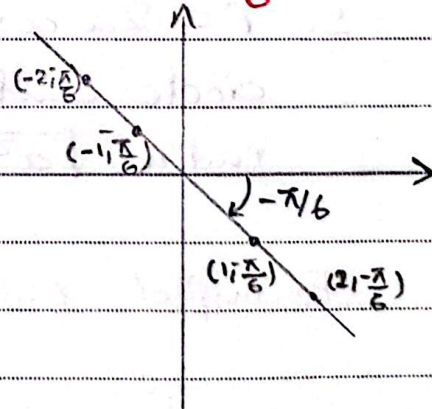 (-2,-π/6)
(-1,-π/6)
-π/6
(1,-π/6)
(2,-π/6)